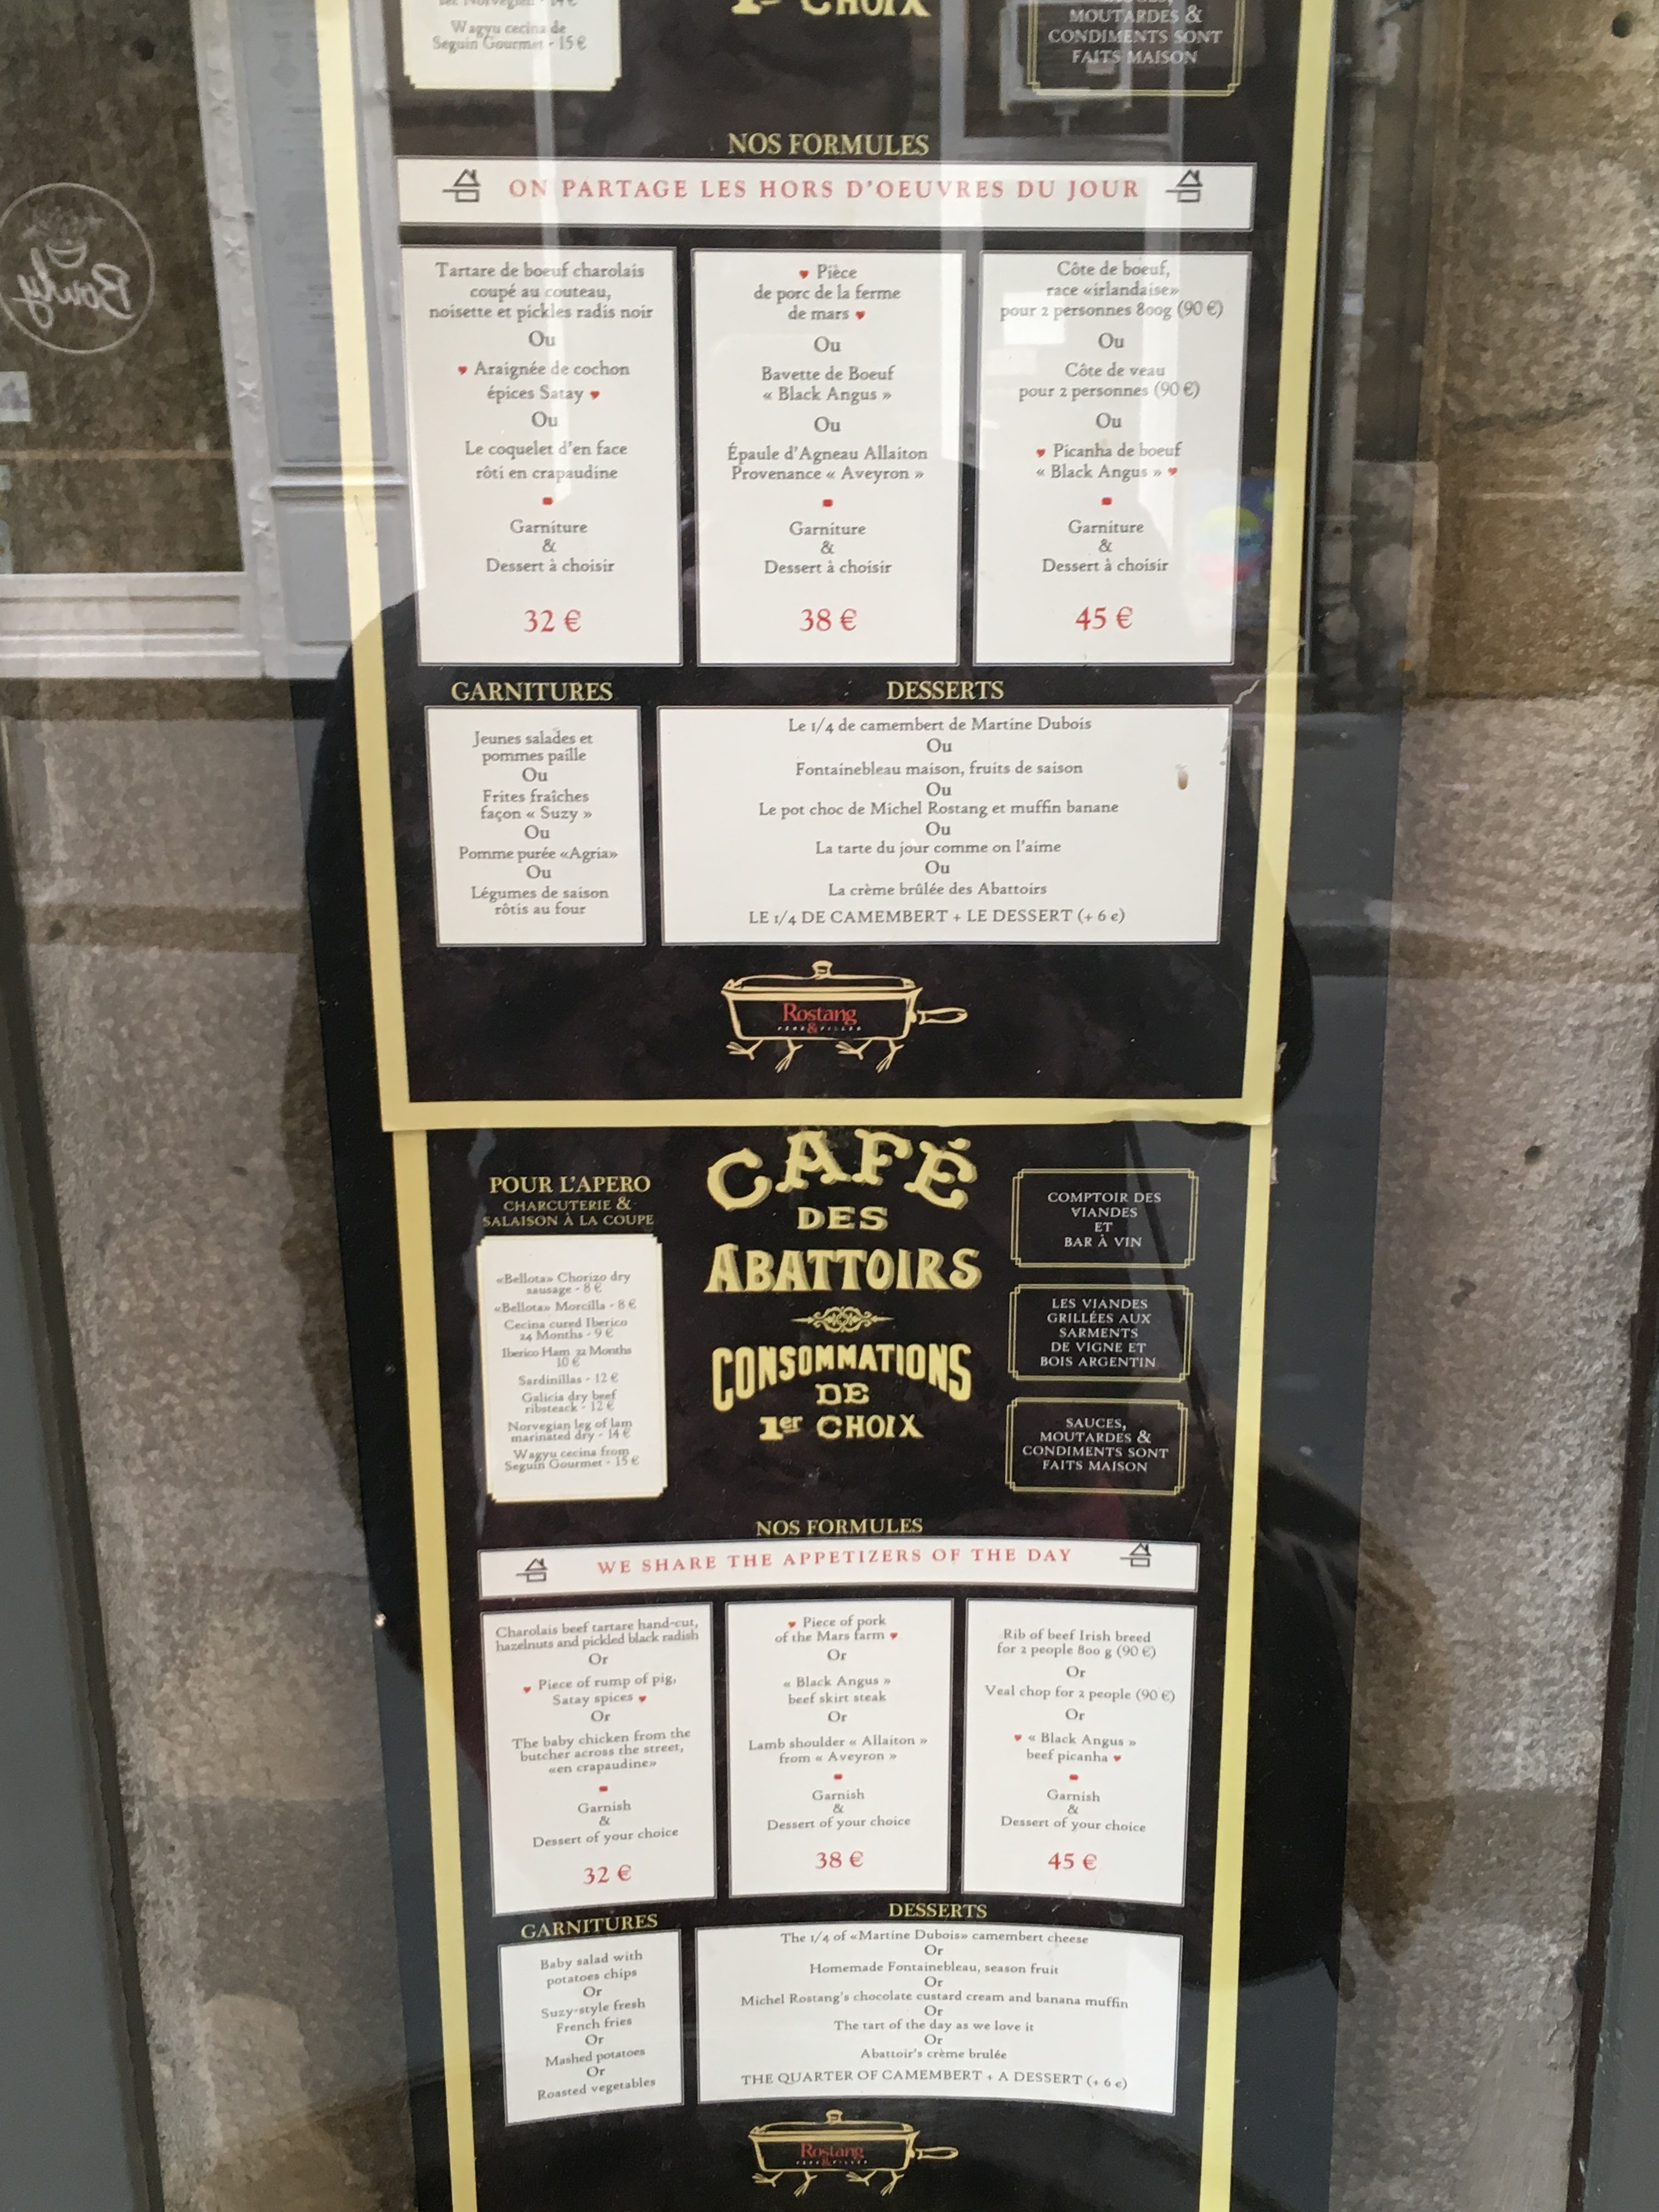 Wagyu cecina de
Seguin Gourmet - 15 €
1er CHOIX
MOUTARDES &
CONDIMENTS SONT
FAITS MAISON
NOS FORMULES
ON PARTAGE LES HORS D'OEUVRES DU JOUR
Tartare de boeuf charolais
coupé au couteau,
noisette et pickles radis noir
Ou
♥ Araignée de cochon
épices Satay ♥
Ou
Le coquelet d'en face
rôti en crapaudine
Garniture
&
Dessert à choisir
32 €
♥ Pièce
de porc de la ferme
de mars ♥
Ou
Bavette de Boeuf
« Black Angus »
Ou
Épaule d'Agneau Allaiton
Provenance « Aveyron »
Garniture
&
Dessert à choisir
38 €
Côte de boeuf,
race «irlandaise»
pour 2 personnes 800g (90 €)
Ou
Côte de veau
pour 2 personnes (90 €)
Ou
♥ Picanha de boeuf
« Black Angus » ♥
Garniture
&
Dessert à choisir
45 €
GARNITURES
Jeunes salades et
pommes paille
Ou
Frites fraîches
façon « Suzy »
Ou
Pomme purée «Agria»
Ou
Légumes de saison
rôtis au four
DESSERTS
Le 1/4 de camembert de Martine Dubois
Ou
Fontainebleau maison, fruits de saison
Ou
Le pot choc de Michel Rostang et muffin banane
Ou
La tarte du jour comme on l'aime
Ou
La crème brûlée des Abattoirs
LE 1/4 DE CAMEMBERT + LE DESSERT (+ 6 €)
Rostang
POUR L'APERO
CHARCUTERIE &
SALAISON À LA COUPE
«Bellota» Chorizo dry
sausage - 8 €
«Bellota» Morcilla - 8 €
Cecina cured Iberico
24 Months - 9 €
Iberico Ham 22 Months
10 €
Sardinillas - 12 €
Galicia dry beef
ribsteack - 12 €
Norvegian leg of lam
marinated dry - 14 €
Wagyu cecina from
Seguin Gourmet - 15 €
CAFÉ
DES
ABATTOIRS
CONSOMMATIONS
DE
1er CHOIX
COMPTOIR DES
VIANDES
ET
BAR À VIN
LES VIANDES
GRILLÉES AUX
SARMENTS
DE VIGNE ET
BOIS ARGENTIN
SAUCES,
MOUTARDES &
CONDIMENTS SONT
FAITS MAISON
NOS FORMULES
WE SHARE THE APPETIZERS OF THE DAY
Charolais beef tartare hand-cut,
hazelnuts and pickled black radish
Or
♥ Piece of rump of pig,
Satay spices ♥
Or
The baby chicken from the
butcher across the street,
«en crapaudine»
Garnish
&
Dessert of your choice
32 €
♥ Piece of pork
of the Mars farm ♥
Or
« Black Angus »
beef skirt steak
Or
Lamb shoulder « Allaiton »
from « Aveyron »
Garnish
&
Dessert of your choice
38 €
Rib of beef Irish breed
for 2 people 800 g (90 €)
Or
Veal chop for 2 people (90 €)
Or
♥ « Black Angus »
beef picanha ♥
Garnish
&
Dessert of your choice
45 €
GARNITURES
Baby salad with
potatoes chips
Or
Suzy-style fresh
French fries
Or
Mashed potatoes
Or
Roasted vegetables
DESSERTS
The 1/4 of «Martine Dubois» camembert cheese
Or
Homemade Fontainebleau, season fruit
Or
Michel Rostang's chocolate custard cream and banana muffin
Or
The tart of the day as we love it
Or
Abattoir's crème brulée
THE QUARTER OF CAMEMBERT + A DESSERT (+ 6 €)
Rostang